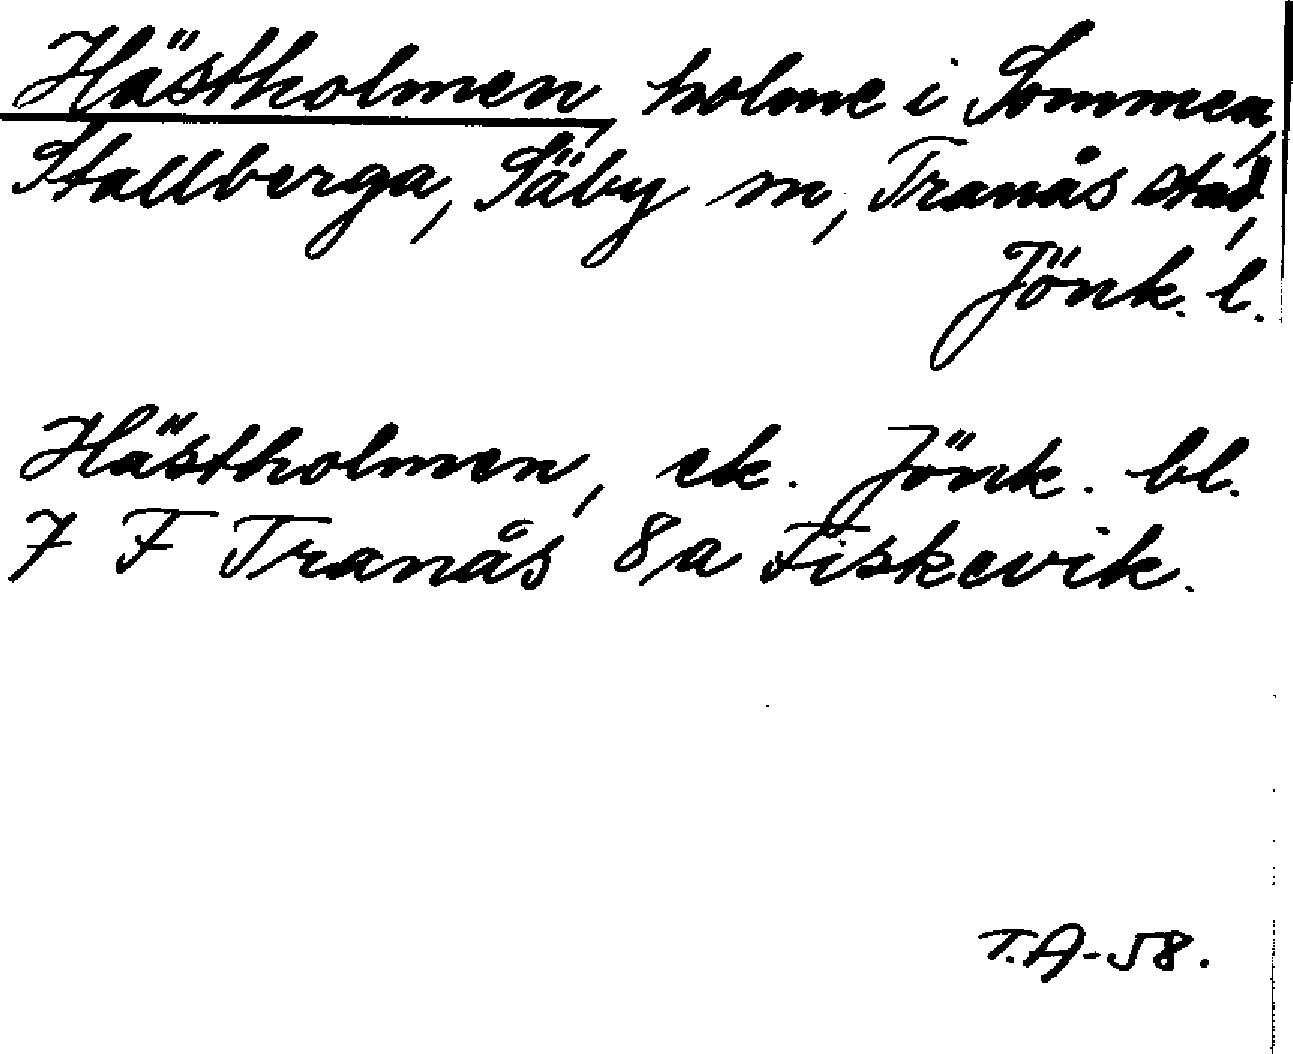 Hästholmen, holme i Sommen,
Stallberga, Säby sn, Tranås stad,
Jönk. l.
Hästholmen, ek. Jönk. bl.
7 F Tranås 8a Fiskevik.
T.A-58.